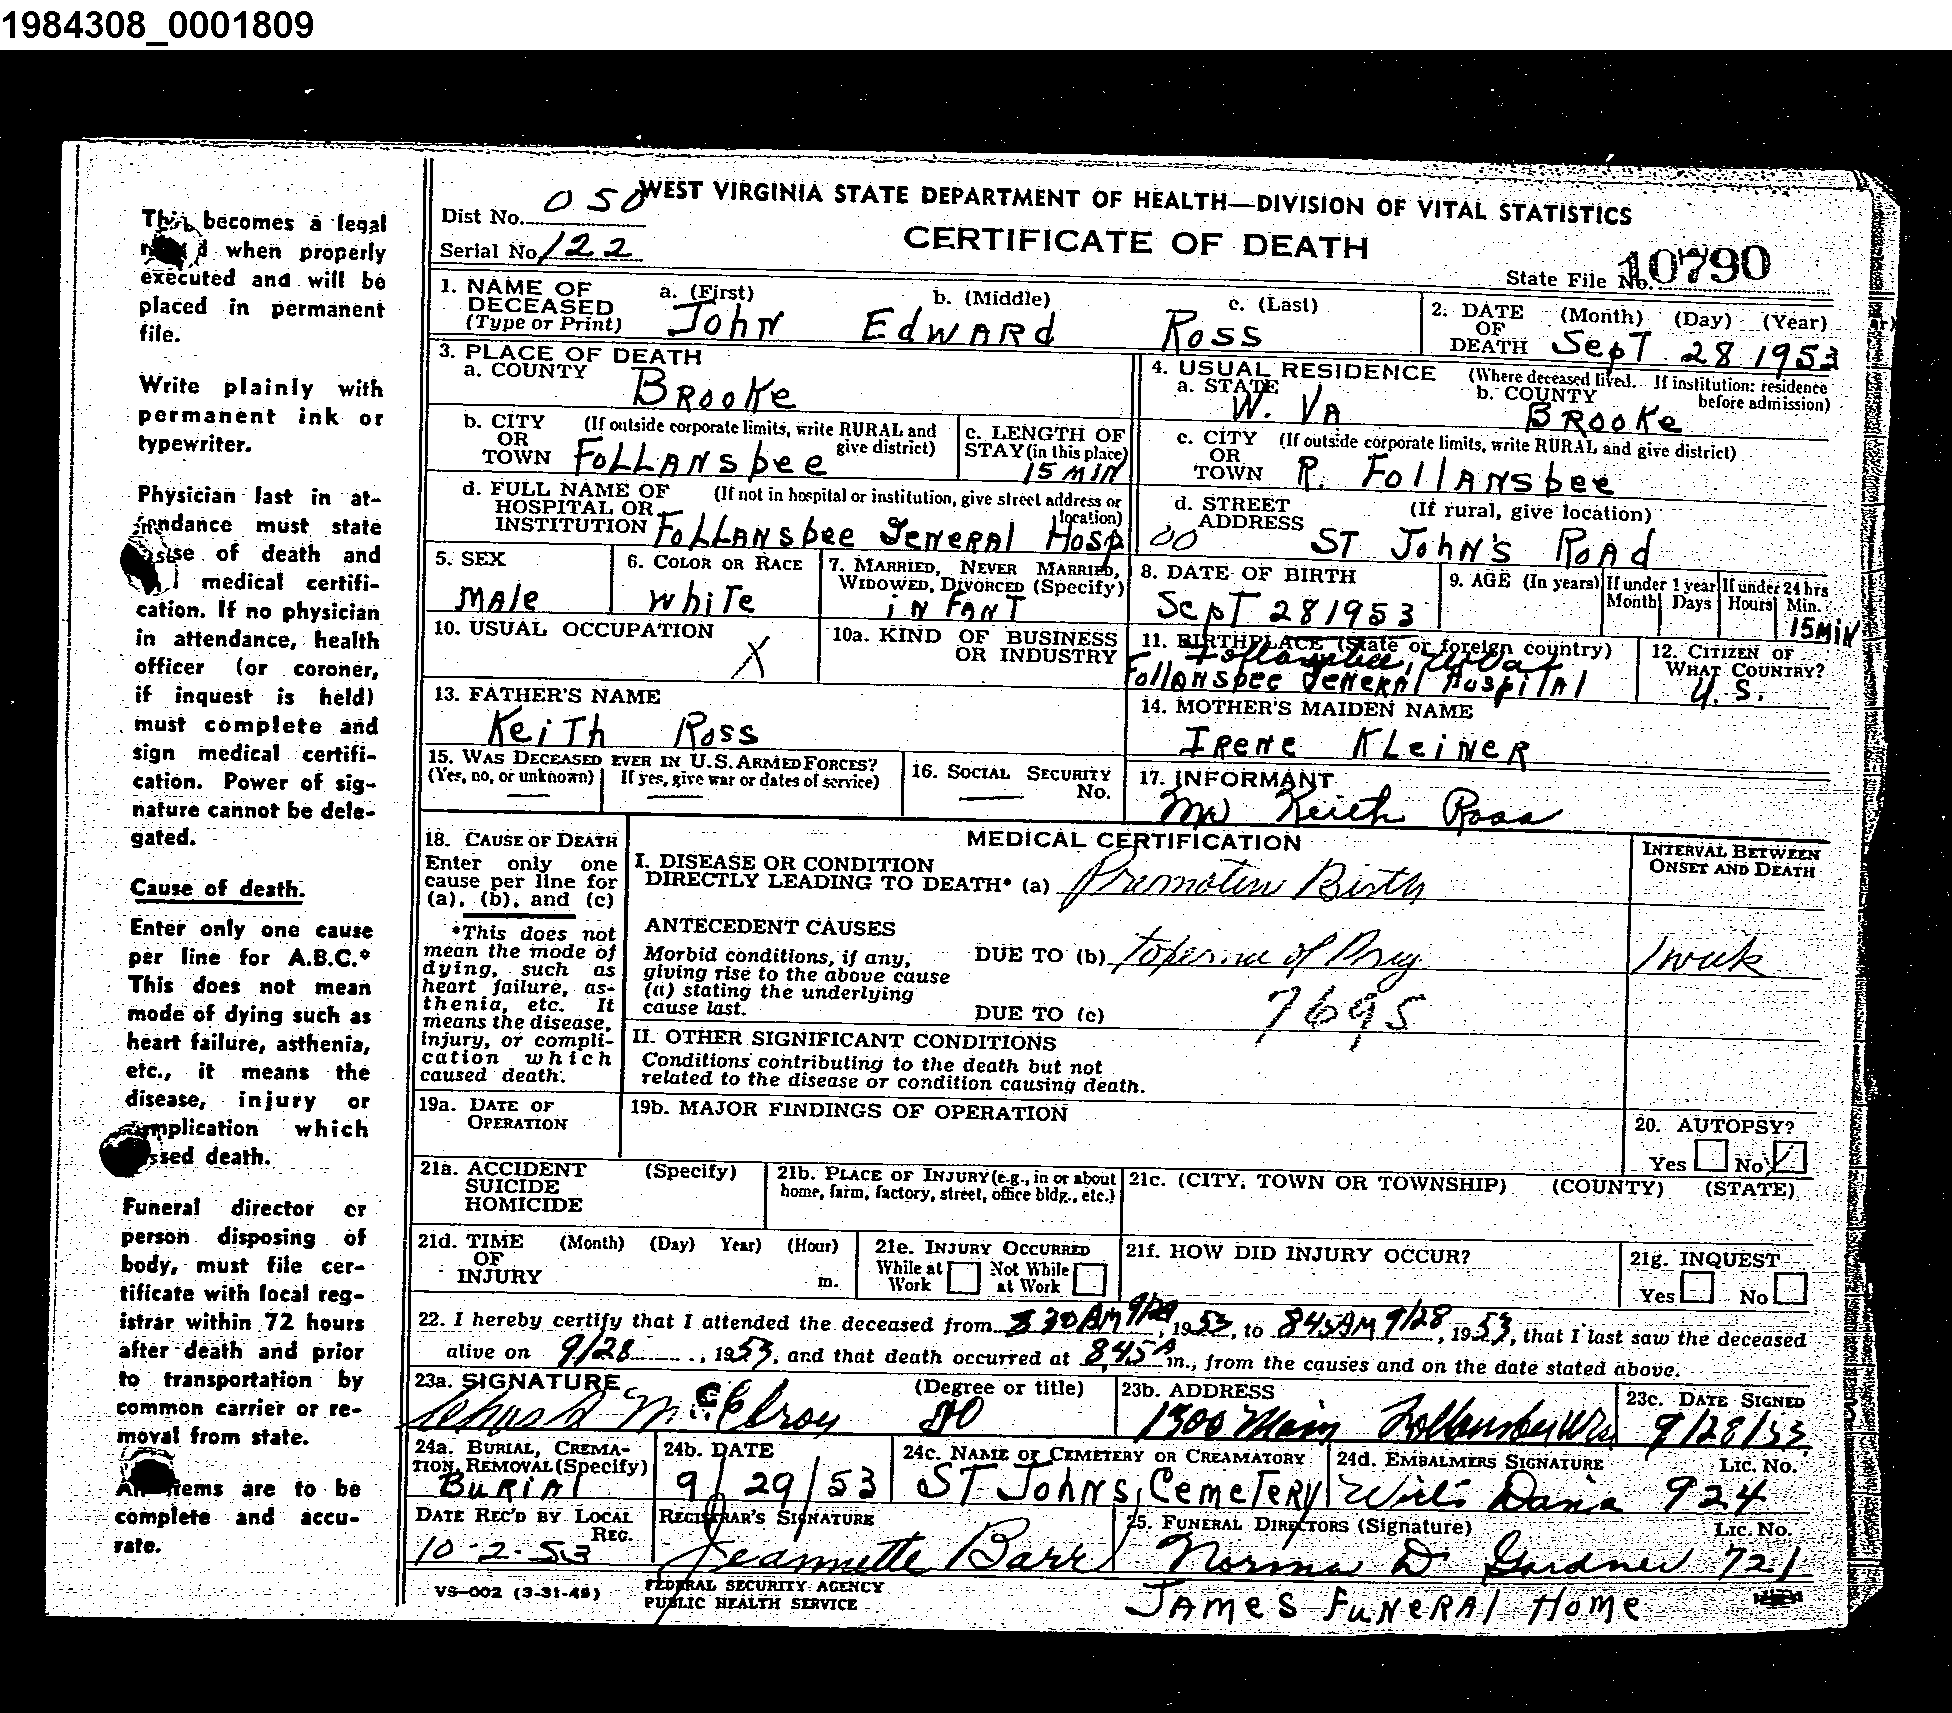 1984308_0001809
This becomes a legal
when properly
executed and will be
placed in permanent
file.
Write plainly with
permanent ink or
typewriter.
Physician last in at-
tendance must state
cause of death and
medical certifi-
cation. If no physician
in attendance, health
officer (or coroner,
if inquest is held)
must complete and
sign medical certifi-
cation. Power of sig-
nature cannot be dele-
gated.
Cause of death.
Enter only one cause
per line for A.B.C.*
This does not mean
mode of dying such as
heart failure, asthenia,
etc., it means the
disease, injury or
complication which
caused death.
Funeral director or
person disposing of
body, must file cer-
tificate with local reg-
istrar within 72 hours
after death and prior
to transportation by
common carrier or re-
moval from state.
All items are to be
complete and accu-
rate.
Dist No. 050 WEST VIRGINIA STATE DEPARTMENT OF HEALTH—DIVISION OF VITAL STATISTICS
Serial No. 122 CERTIFICATE OF DEATH
State File No. 10790
1. NAME OF DECEASED (Type or Print) a. (First) John b. (Middle) Edward c. (Last) Ross
2. DATE OF DEATH (Month) (Day) (Year) Sept 28 1953
3. PLACE OF DEATH
a. COUNTY Brooke
4. USUAL RESIDENCE (Where deceased lived. If institution: residence before admission)
a. STATE W. VA b. COUNTY Brooke
b. CITY OR TOWN (If outside corporate limits, write RURAL and give district) Follansbee
c. LENGTH OF STAY (in this place) 15 MIN
c. CITY OR TOWN (If outside corporate limits, write RURAL and give district) R. Follansbee
d. FULL NAME OF HOSPITAL OR INSTITUTION (If not in hospital or institution, give street address or location) Follansbee General Hosp
d. STREET ADDRESS (If rural, give location) 00 ST John's Road
5. SEX Male
6. COLOR OR RACE White
7. MARRIED, NEVER MARRIED, WIDOWED, DIVORCED (Specify) inFANT
8. DATE OF BIRTH Sept 28 1953
9. AGE (In years) If under 1 year Month Days If under 24 hrs Hours Min. 15 MIN
10. USUAL OCCUPATION X
10a. KIND OF BUSINESS OR INDUSTRY
11. BIRTHPLACE (State or foreign country) Follansbee, W.Va
Follansbee General Hospital
12. CITIZEN OF WHAT COUNTRY? U.S.
13. FATHER'S NAME
Keith Ross
14. MOTHER'S MAIDEN NAME
Irene Kleiner
15. WAS DECEASED EVER IN U.S. ARMED FORCES?
(Yes, no, or unknown) — If yes, give war or dates of service) —
16. SOCIAL SECURITY No. —
17. INFORMANT
Mr Keith Ross
18. CAUSE OF DEATH
Enter only one
cause per line for
(a), (b), and (c)
*This does not
mean the mode of
dying, such as
heart failure, as-
thenia, etc. It
means the disease,
injury, or compli-
cation which
caused death.
MEDICAL CERTIFICATION
INTERVAL BETWEEN ONSET AND DEATH
I. DISEASE OR CONDITION
DIRECTLY LEADING TO DEATH* (a) Premature Birth
ANTECEDENT CAUSES
Morbid conditions, if any,
giving rise to the above cause
(a) stating the underlying
cause last.
DUE TO (b) of Preg 1 week
7695
DUE TO (c)
II. OTHER SIGNIFICANT CONDITIONS
Conditions contributing to the death but not
related to the disease or condition causing death.
19a. DATE OF OPERATION
19b. MAJOR FINDINGS OF OPERATION
20. AUTOPSY?
Yes No ✓
21a. ACCIDENT SUICIDE HOMICIDE (Specify)
21b. PLACE OF INJURY (e.g., in or about home, farm, factory, street, office bldg., etc.)
21c. (CITY, TOWN OR TOWNSHIP) (COUNTY) (STATE)
21d. TIME OF INJURY (Month) (Day) Year) (Hour) m.
21e. INJURY OCCURRED
While at Work Not While at Work
21f. HOW DID INJURY OCCUR?
21g. INQUEST
Yes No
22. I hereby certify that I attended the deceased from 830AM 9/28, 1953, to 845AM 9/28, 1953, that I last saw the deceased
alive on 9/28, 1953, and that death occurred at 845A m., from the causes and on the date stated above.
23a. SIGNATURE (Degree or title)
McElroy DO
23b. ADDRESS
1300 Main Follansbee WVa
23c. DATE SIGNED
9/28/53
24a. BURIAL, CREMA-
TION, REMOVAL (Specify)
Burial
24b. DATE
9/29/53
24c. NAME OF CEMETERY OR CREAMATORY
ST Johns, Cemetery
24d. EMBALMERS SIGNATURE LIC. NO.
Davis 924
DATE REC'D BY LOCAL REG.
10-2-53
REGISTRAR'S SIGNATURE
Jeannette Barr
25. FUNERAL DIRECTORS (Signature) LIC. NO.
Norma D Gardner 721
VS-002 (3-31-49)
FEDERAL SECURITY AGENCY
PUBLIC HEALTH SERVICE
James Funeral Home